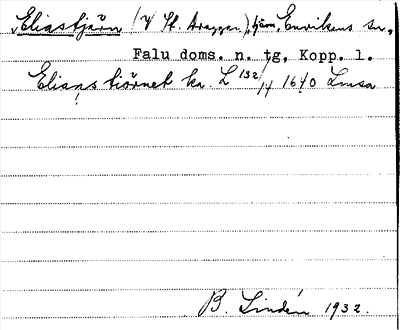 Eliastjärn (V St. Araggen), tjärn, Envikens sn.,
Falu doms. n. tg, Kopp. l.
Elians tiörnet ka. L 132/14 1640 Lmsa
B. Lindén 1932.